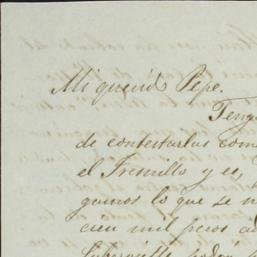 Mi querido Pepe.
Teng
de contestarlas com
el Fresnillo y es,
garnos lo que se n
cien mil pesos a